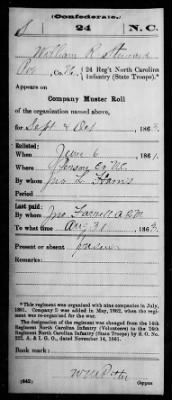 (Confederate.)
S 24 N. C.
William R
Pvt, Co. , 24 Reg't North Carolina
Infantry (State Troops).*
Appears on
Company Muster Roll
of the organization named above,
for Sept & Oct, 1863.
Enlisted:
When June 6, 1861.
Where Onslow Co NC
By whom Jno L
Period
Last paid:
By whom Jno Farnell A.Q.M.
To what time Aug 31, 1863.
Present or absent present
Remarks:
*This regiment was organized with nine companies in July,
1861. Company I was added in May, 1862, when the regi-
ment was re-organized for the war.
The designation of the regiment was changed from the 14th
Regiment North Carolina Infantry (Volunteers) to the 24th
Regiment North Carolina Infantry (State Troops) by S. O. No.
222, A. & I. G. O., dated November 14, 1861.
Book mark:
(642)
Copyist.